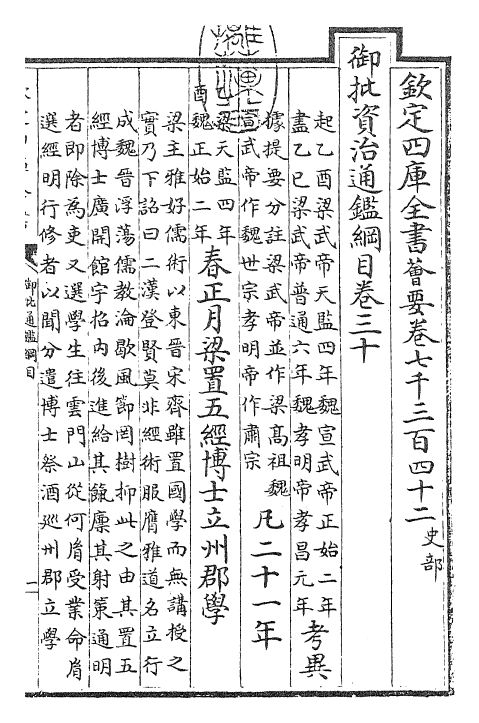 欽定四庫全書薈要卷七千三百四十二史部
御批資治通鑑綱目卷三十
起乙酉梁武帝天監四年魏宣武帝正始二年
盡乙巳梁武帝普通六年魏孝明帝孝昌元年
考異
據提要分註梁武帝並作梁高祖魏
宣武帝作魏世宗孝明帝作肅宗
凡二十一年
乙梁天監四年
酉魏正始二年
春正月梁置五經博士立州郡學
梁主雅好儒術以東晉宋齊雖置國學而無講授之
實乃下詔曰二漢登賢莫非經術服膺雅道名立行
成魏晉浮蕩儒教淪歇風節罔樹抑此之由其置五
經博士廣開館宇招內後進給其餼廩其射策通明
者即除為吏又選學生往雲門山從何𦙍受業命𦙍
選經明行修者以聞分遣博士祭酒巡州郡立學
御批通鑑綱目
一